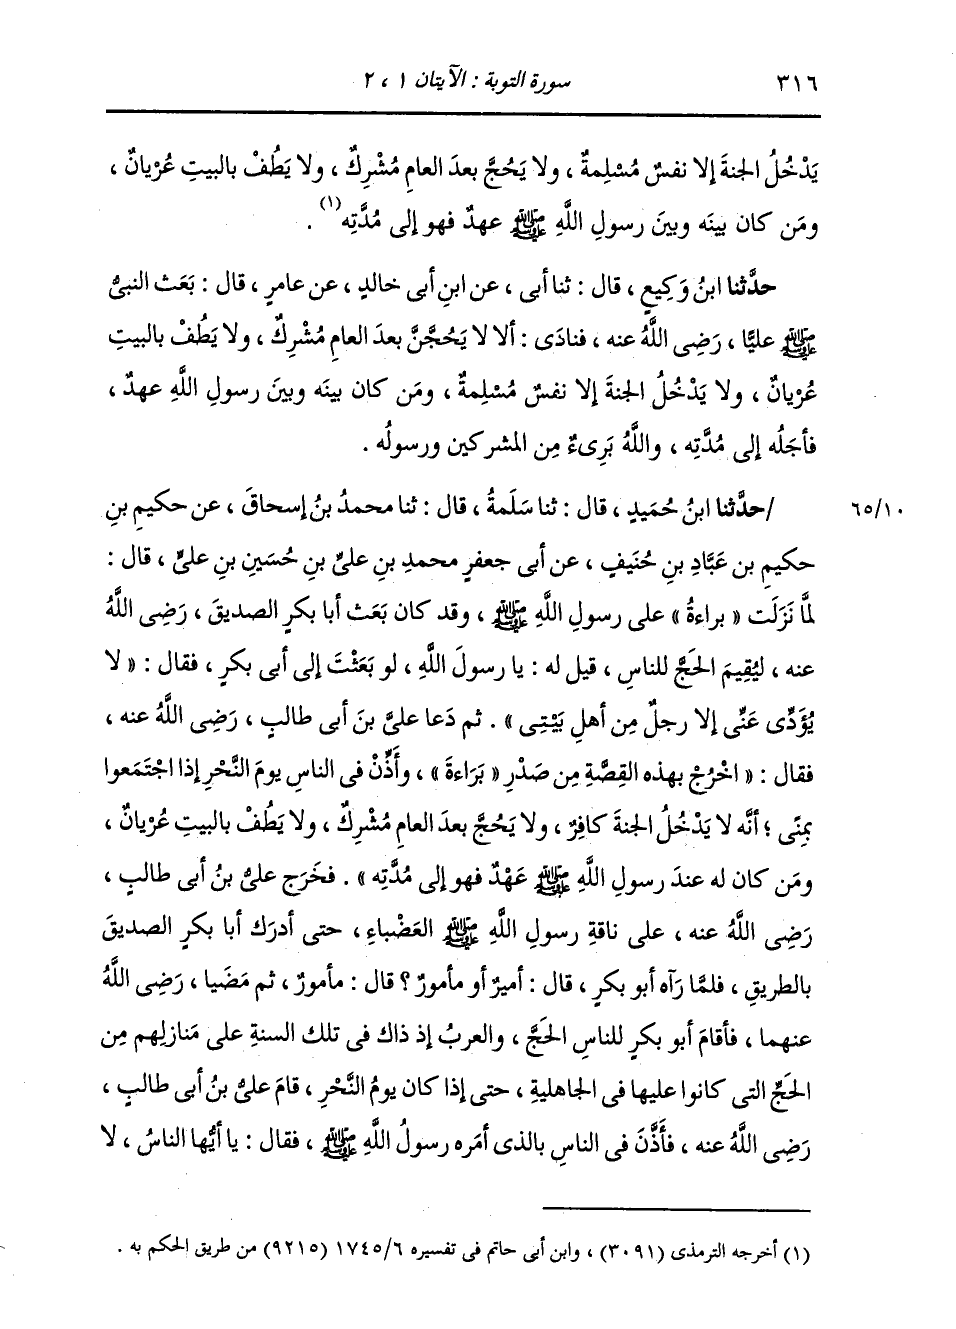 ٣١٦ سورة التوبة : الآيتان ١ ، ٢
يَدْخُلُ الجنةَ إلا نفسٌ مُسْلِمةٌ ، ولا يَحُجَّ بعدَ العامِ مُشْرِكٌ ، ولا يَطُفْ بالبيتِ عُرْيانٌ ،
ومَن كان بينَه وبينَ رسولِ اللَّهِ ﷺ عهدٌ فهو إلى مُدَّتِه(١) .
حدَّثنا ابنُ وَكِيعٍ ، قال : ثنا أبى ، عن ابنِ أبى خالدٍ ، عن عامرٍ ، قال : بَعَث النبىُّ
ﷺ عليًّا ، رَضِى اللَّهُ عنه ، فنادَى : ألا لا يَحُجَّنَّ بعدَ العامِ مُشْرِكٌ ، ولا يَطُفْ بالبيتِ
عُرْيانٌ ، ولا يَدْخُلُ الجنةَ إلا نفسٌ مُسْلِمةٌ ، ومَن كان بينَه وبينَ رسولِ اللَّهِ عهدٌ ،
فأجَلُه إلى مُدَّتِه ، واللَّهُ بَرِىءٌ مِن المشركين ورسولُه .
٦٥/١٠ /حدَّثنا ابنُ حُمَيدٍ ، قال : ثنا سَلَمةُ ، قال : ثنا محمدُ بنُ إسحاقَ ، عن حكيمِ بنِ
حكيمِ بن عَبَّادِ بنِ حُنَيفٍ ، عن أبى جعفرٍ محمدِ بنِ علىِّ بنِ حُسَينِ بنِ علىٍّ ، قال :
لمَّا نَزَلَت « براءةُ » على رسولِ اللَّهِ ﷺ ، وقد كان بَعَث أبا بكرٍ الصديقَ ، رَضِى اللَّهُ
عنه ، ليُقِيمَ الحَجَّ للناسِ ، قيل له : يا رسولَ اللَّهِ ، لو بَعَثْتَ إلى أبى بكرٍ ، فقال : « لا
يُؤَدِّى عَنِّى إلا رجلٌ مِن أهلِ بَيْتِى » . ثم دَعا علىَّ بنَ أبى طالبٍ ، رَضِى اللَّهُ عنه ،
فقال : « اخْرُجْ بهذه القِصَّةِ مِن صَدْرِ « بَرَاءةَ » ، وأَذِّنْ فى الناسِ يومَ النَّحْرِ إذا اجْتَمَعوا
بمِنًى ؛ أنَّه لا يَدْخُلُ الجنةَ كافِرٌ ، ولا يَحُجَّ بعدَ العامِ مُشْرِكٌ ، ولا يَطُفْ بالبيتِ عُرْيانٌ ،
ومَن كان له عندَ رسولِ اللَّهِ ﷺ عَهْدٌ فهو إلى مُدَّتِه » . فخَرَج علىُّ بنُ أبى طالبٍ ،
رَضِى اللَّهُ عنه ، على ناقةِ رسولِ اللَّهِ ﷺ العَضْباءِ ، حتى أدرَك أبا بكرٍ الصديقَ
بالطريقِ ، فلمَّا رَآه أبو بكرٍ ، قال : أميرٌ أو مأمورٌ ؟ قال : مأمورٌ ، ثم مَضَيا ، رَضِى اللَّهُ
عنهما ، فأقامَ أبو بكرٍ للناسِ الحَجَّ ، والعربُ إذ ذاك فى تلك السنةِ على مَنازلِهم مِن
الحَجِّ التى كانوا عليها فى الجاهليةِ ، حتى إذا كان يومُ النَّحْرِ ، قامَ علىُّ بنُ أبى طالبٍ ،
رَضِى اللَّهُ عنه ، فأَذَّنَ فى الناسِ بالذى أمَره رسولُ اللَّهِ ﷺ ، فقال : يا أيُّها الناسُ ، لا
(١) أخرجه الترمذى (٣٠٩١) ، وابن أبى حاتم فى تفسيره ١٧٤٥/٦ (٩٢١٥) من طريق الحكم به .